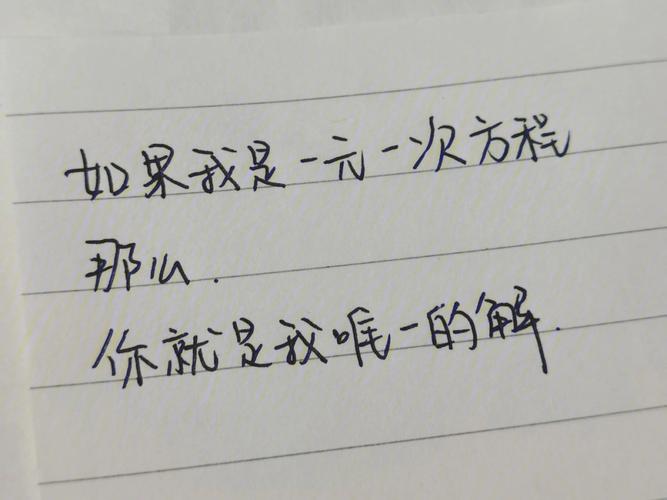 如果我是一元一次方程
那么.
你就是我唯一的解.